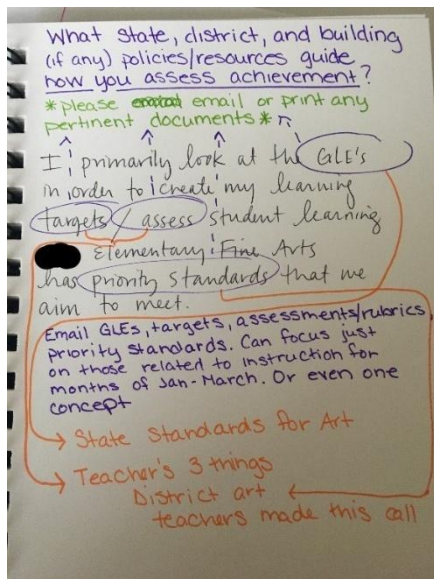 What state, district, and building
(if any) policies/resources guide
how you assess achievement?
*please email or print any
pertinent documents*
I primarily look at the GLE's
in order to create my learning
targets / assess student learning
Elementary Fine Arts
has priority standards that we
aim to meet.
Email GLEs, targets, assessments/rubrics,
priority standards. Can focus just
on those related to instruction for
months of Jan-March. Or even one
concept
→ State Standards for Art
→ Teacher's 3 things
District art
teachers made this call